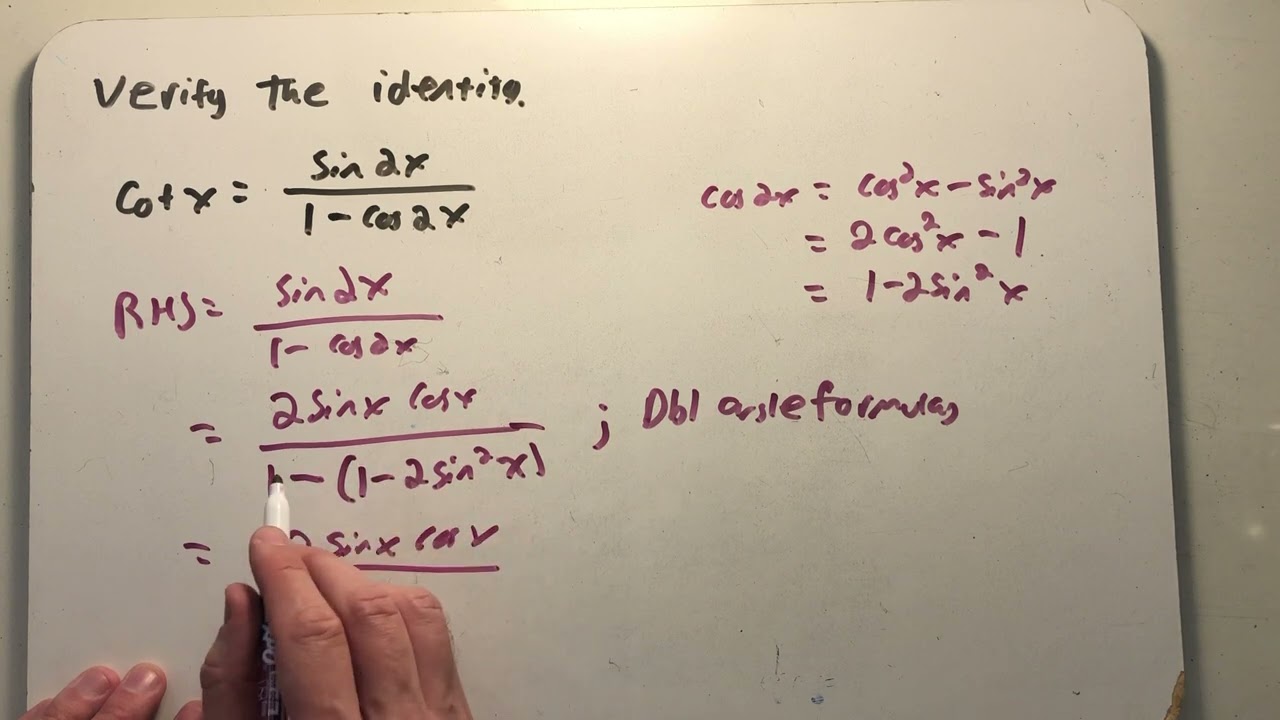 Verify the identity.
cot x = sin 2x / 1 - cos 2x
cos 2x = cos²x - sin²x
= 2cos²x - 1
= 1 - 2sin²x
RHS = sin 2x / 1 - cos 2x
= 2 sinx cosx / 1 - (1 - 2 sin²x) ; Dbl angle formulas
= 2 sinx cosx